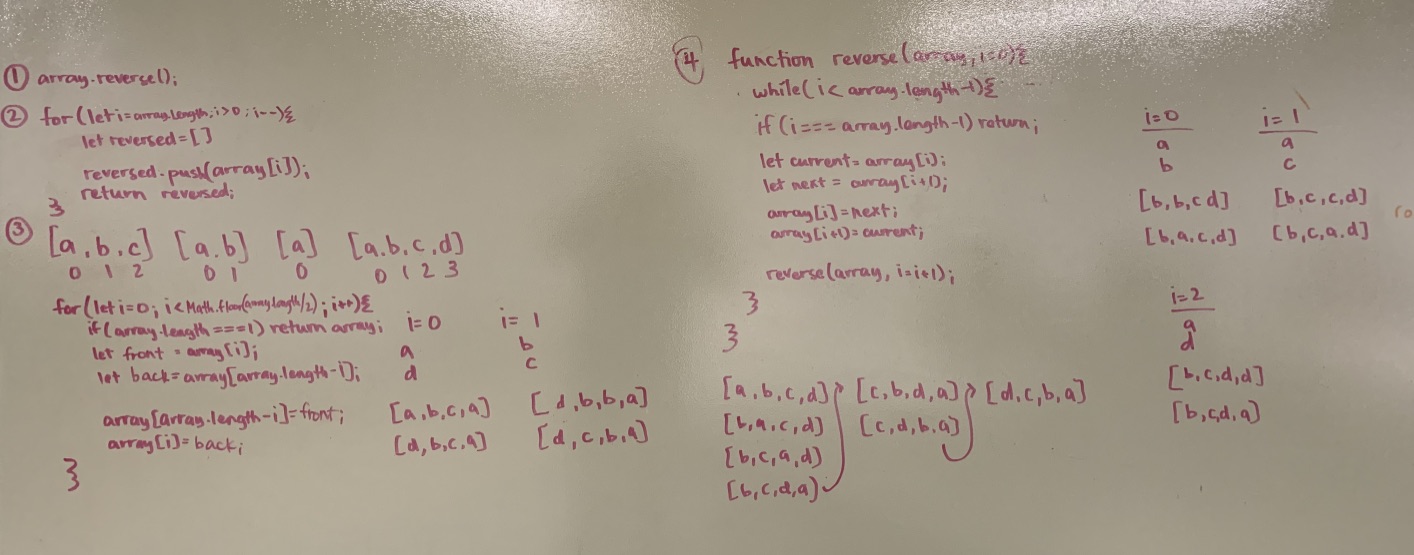 ① array.reverse();
② for(let i=array.length; i>0; i--){
let reversed=[]
reversed.push(array[i]);
return reversed;
}
③ [a,b,c] [a.b] [a] [a.b,c,d]
0 1 2 0 1 0 0 1 2 3
for(let i=0; i<Math.floor(array.length/2); i++){
if(array.length===1) return array; i=0 i=1
let front = array[i]; a b
let back=array[array.length-i]; d c
array[array.length-i]=front; [a,b,c,a] [d,b,b,a]
array[i]=back; [d,b,c,a] [d,c,b,a]
}
④ function reverse(array, i=0){
while(i<array.length-1){
if(i===array.length-1) return;
let current=array[i];
let next = array[i+1];
array[i]=next;
array[i+1]=current;
reverse(array, i=i+1);
}
}
[a,b,c,d] [c,b,d,a] [d,c,b,a]
[b,a,c,d] [c,d,b,a]
[b,c,a,d]
[b,c,d,a]
i=0 i=1
a a
b c
[b,b,c d] [b,c,c,d]
[b,a,c,d] [b,c,a.d]
i=2
a
d
[b,c,d,d]
[b,c,d,a]